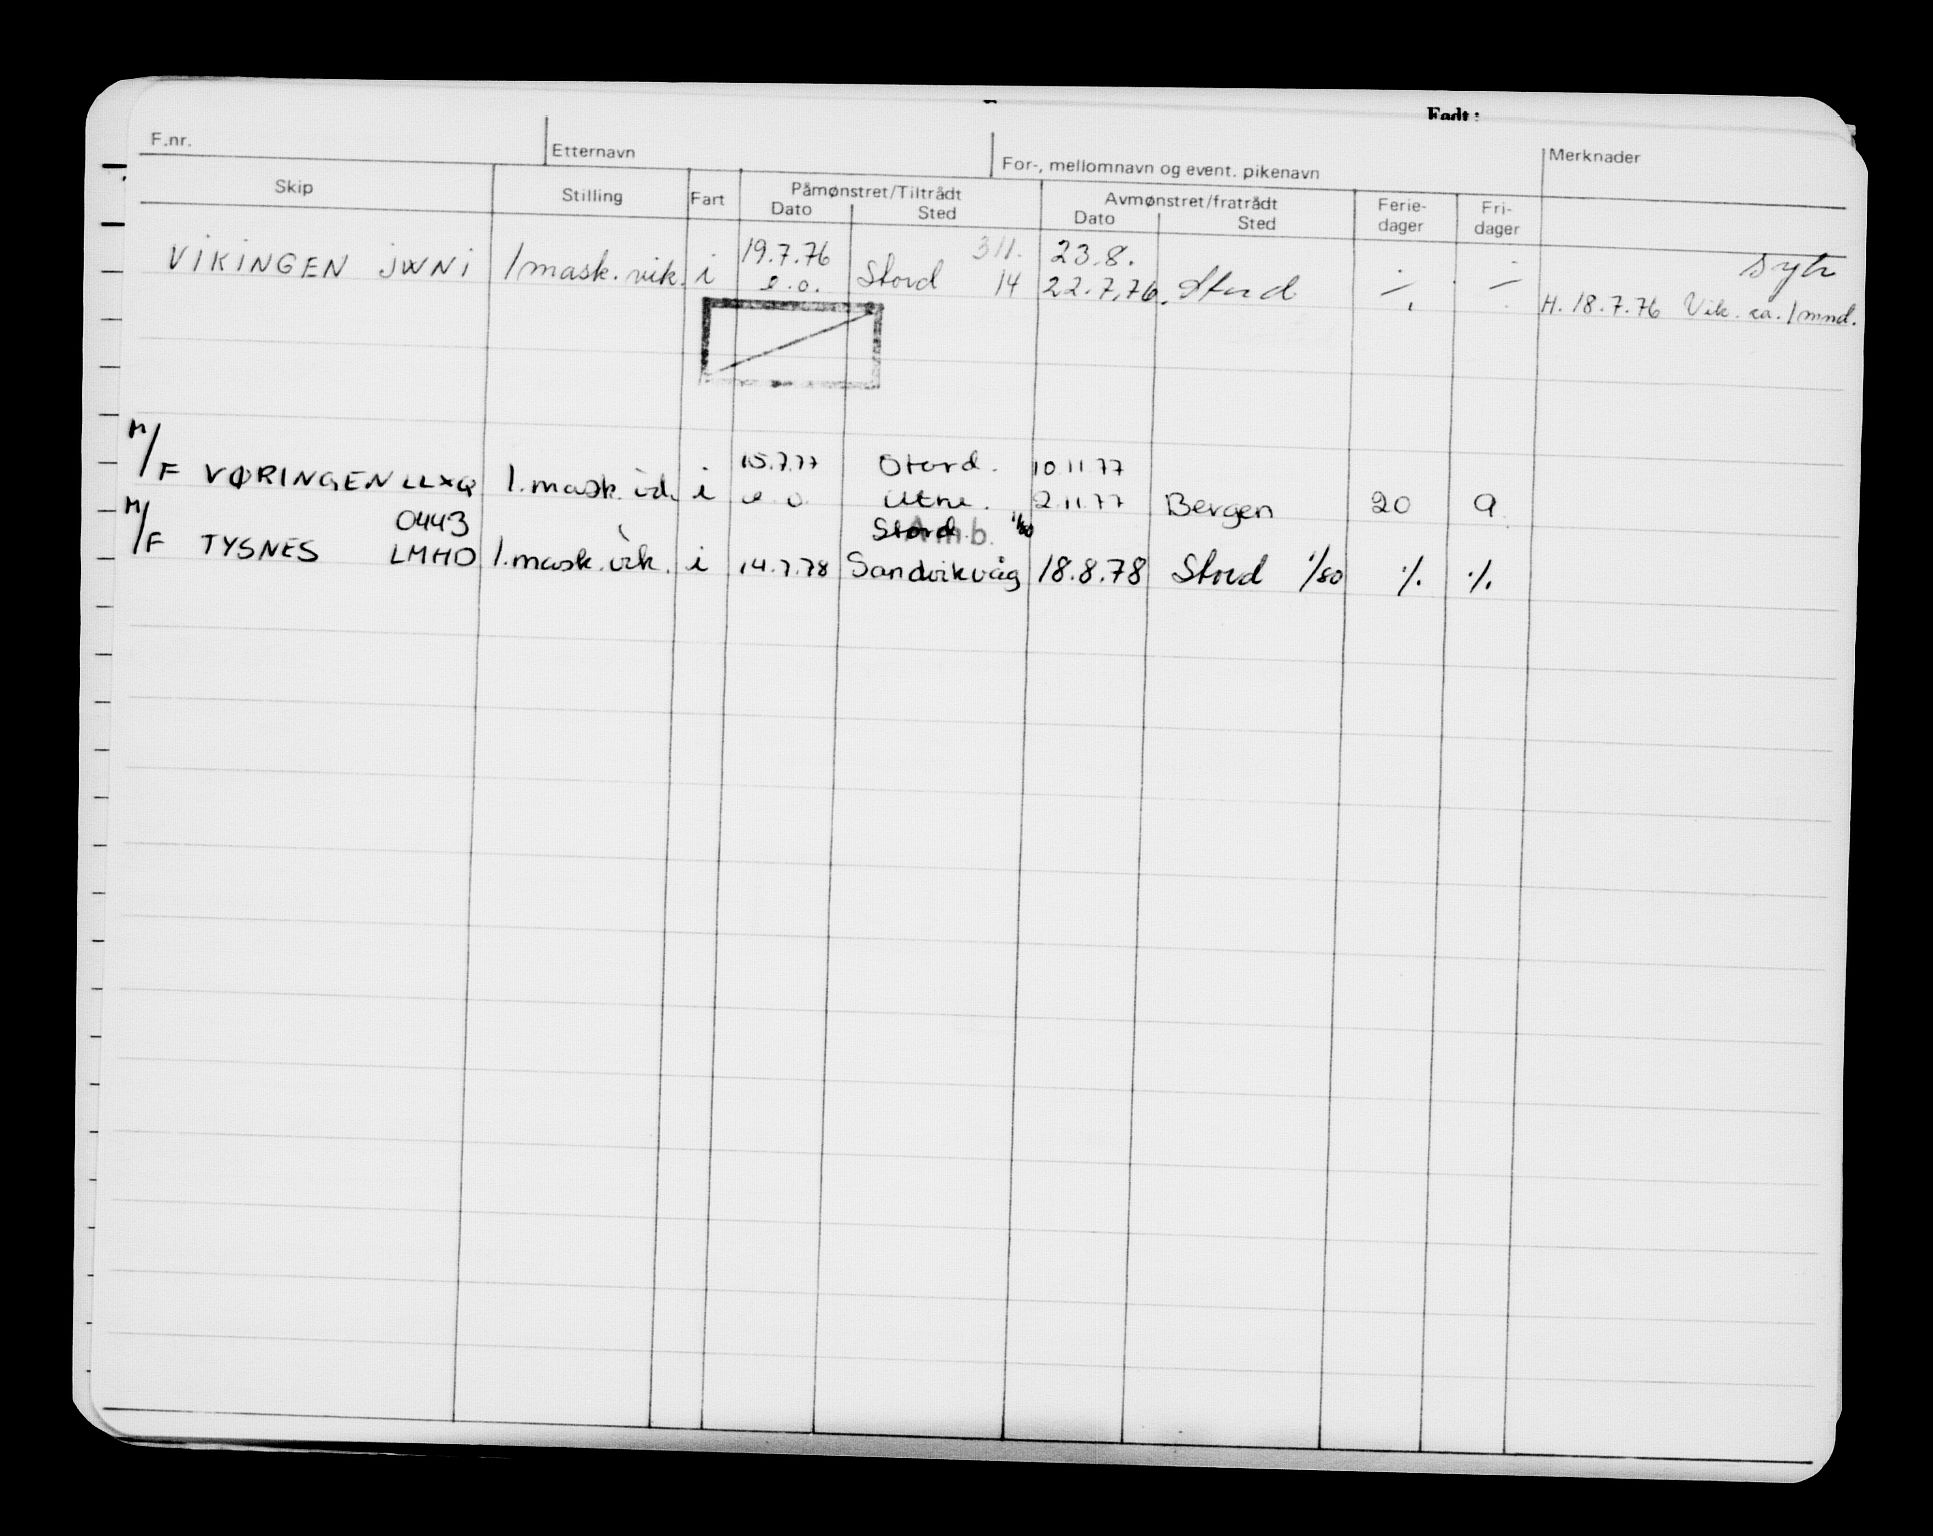 F.nr.
Etternavn
For-, mellomnavn og event. pikenavn
Merknader
Skip
Stilling
Fart
Påmønstret/Tiltrådt
Dato
Sted
Avmønstret/fratrådt
Dato
Sted
Ferie-
dager
Fri-
dager
19.7.76 311. 23.8.
VIKINGEN JWNI 1mask.vik. i e.o. Stord 14 22.7.76. Stord
H. 18.7.76 Vik. ca. 1 mnd.
15.7.77 Stord. 10.11.77
M/F VØRINGEN LLXQ 1.mask. i e o Utne. 2.11.77 Bergen 20 9
0443 Stord Amb. 1/80
M/F TYSNES LMHO 1.mask.vik. i 14.7.78 Sandvikvåg 18.8.78 Stord 1/80 ./. ./.